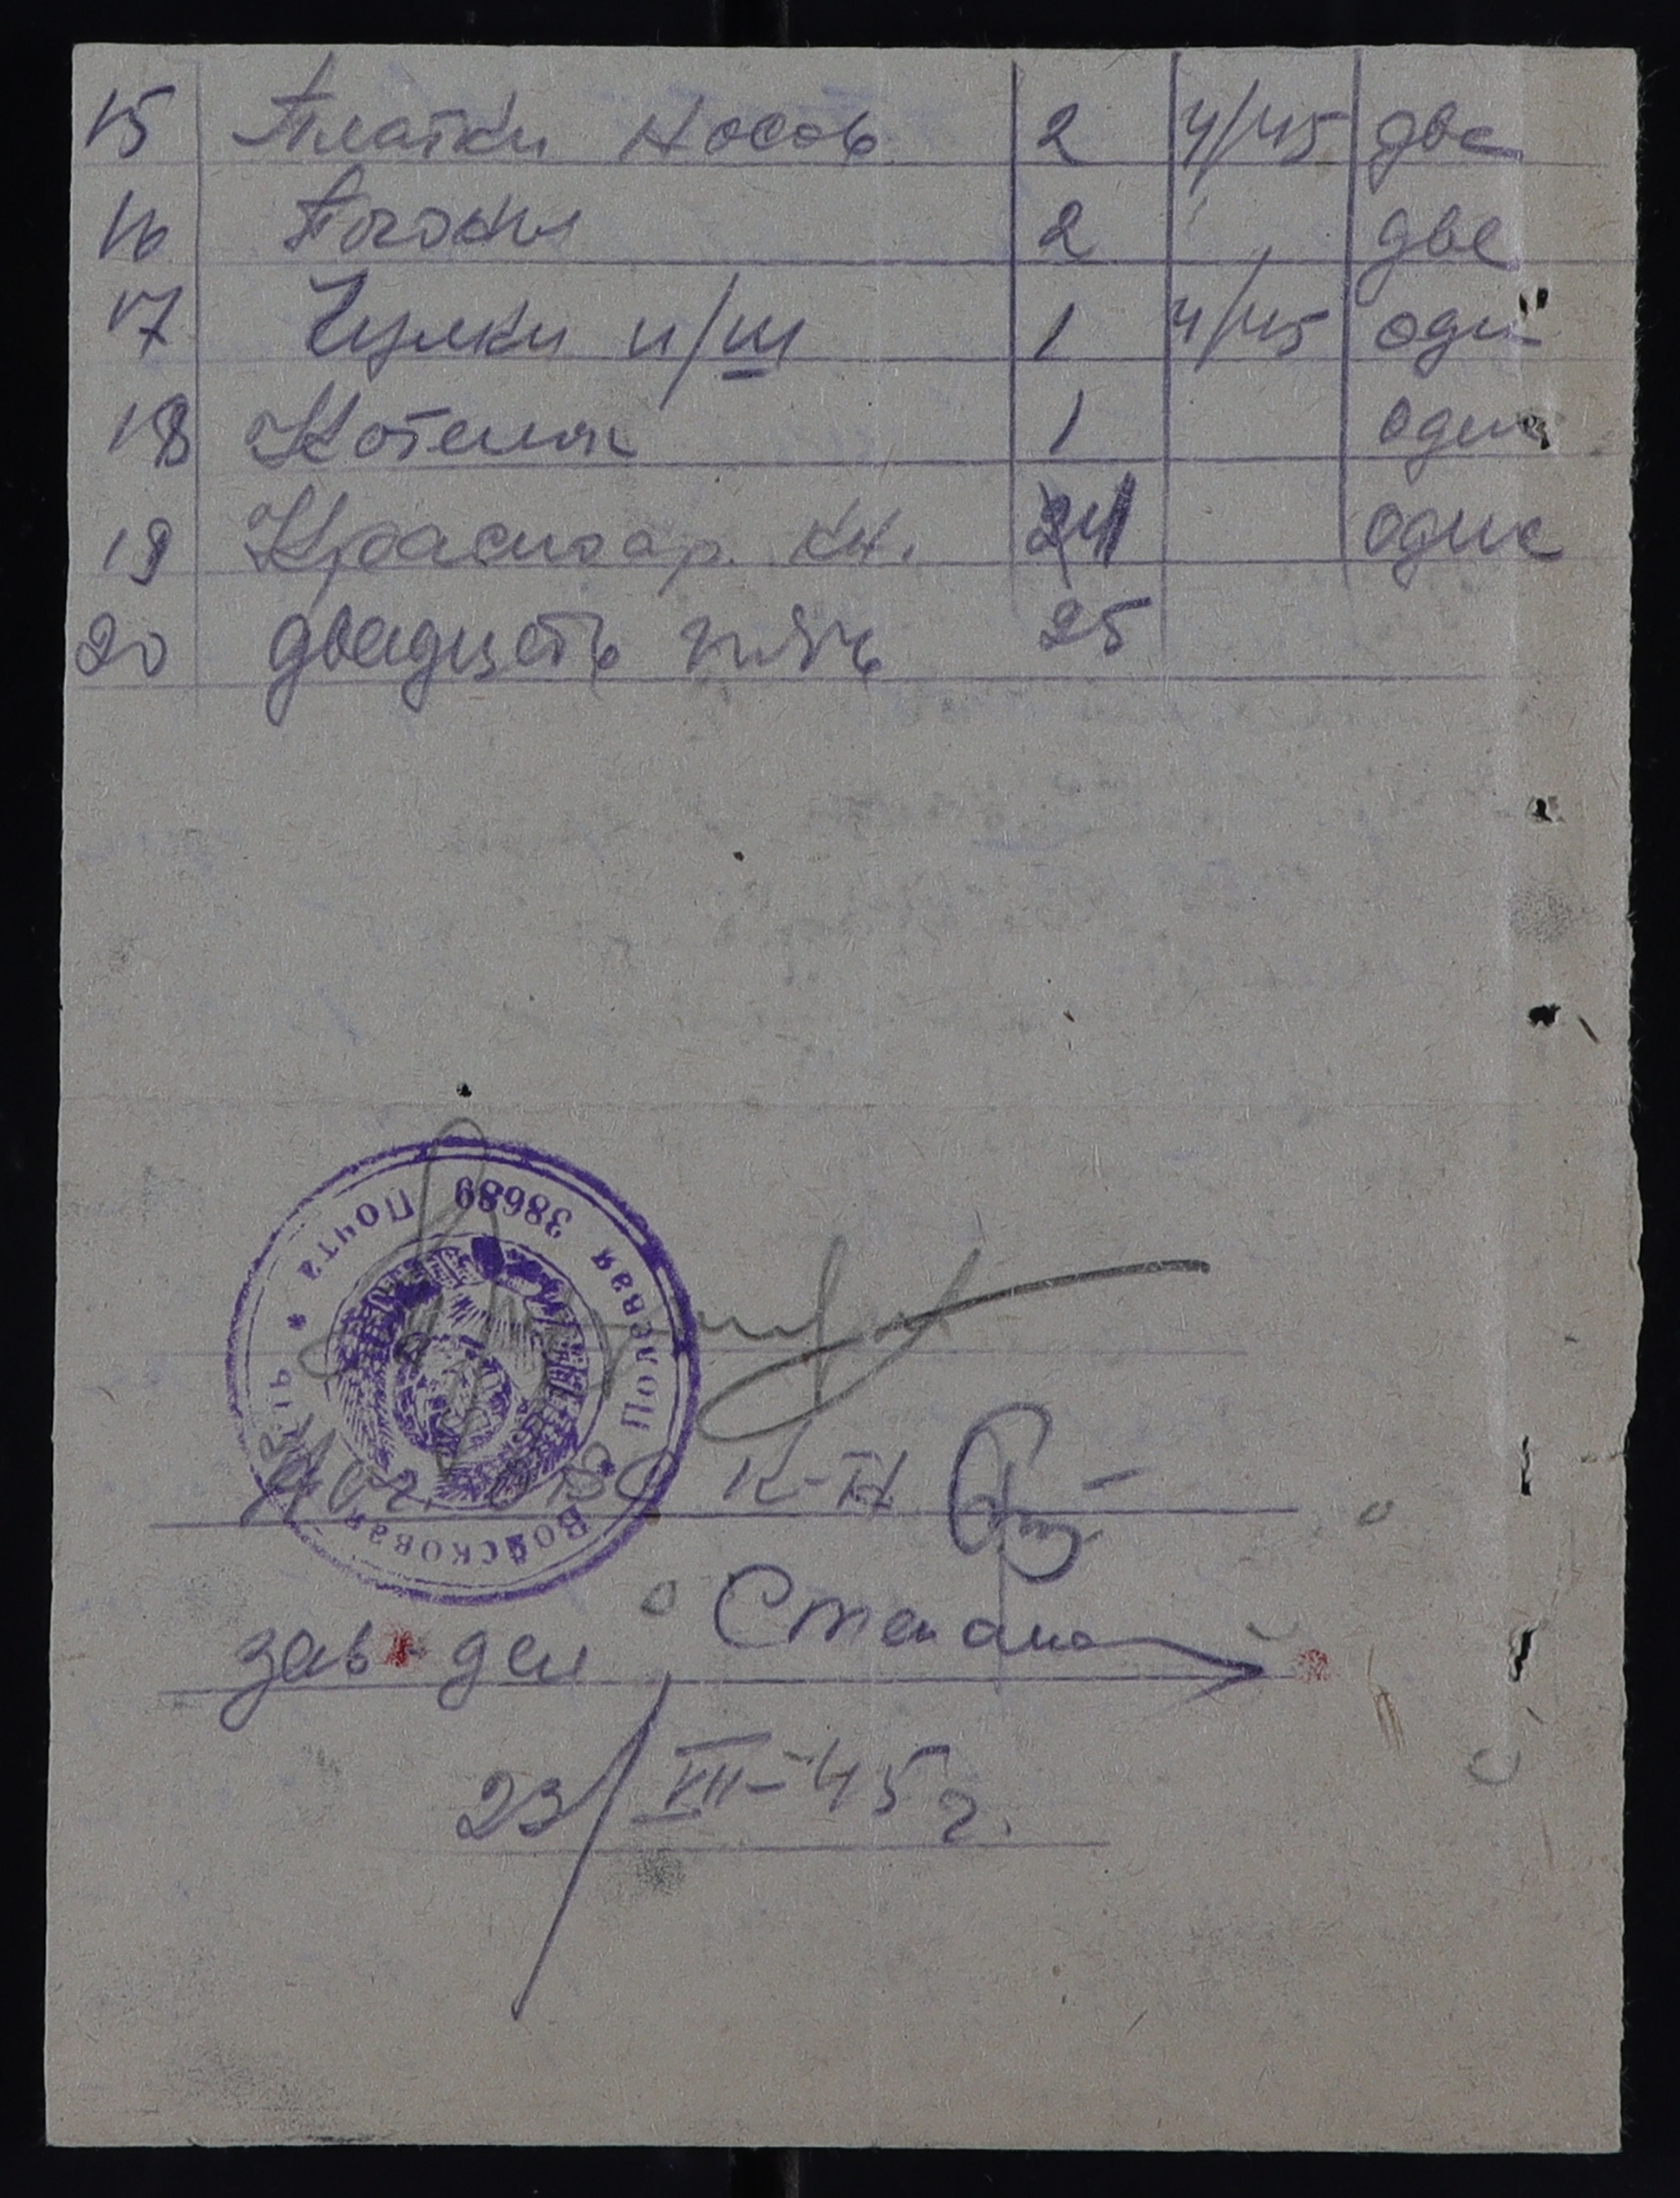 15 Платки носов 2 4/45 две
16 Погоны 2 две
17 Чулки п/ш 1 4/45 один
18 Котелок 1 один
19 Красноар. кн. 1 одна
20 двадцать пять 25
Войсковая часть * Полевая Почта * 38689
к-н
зав-дел Степано
23/VII-45 г.